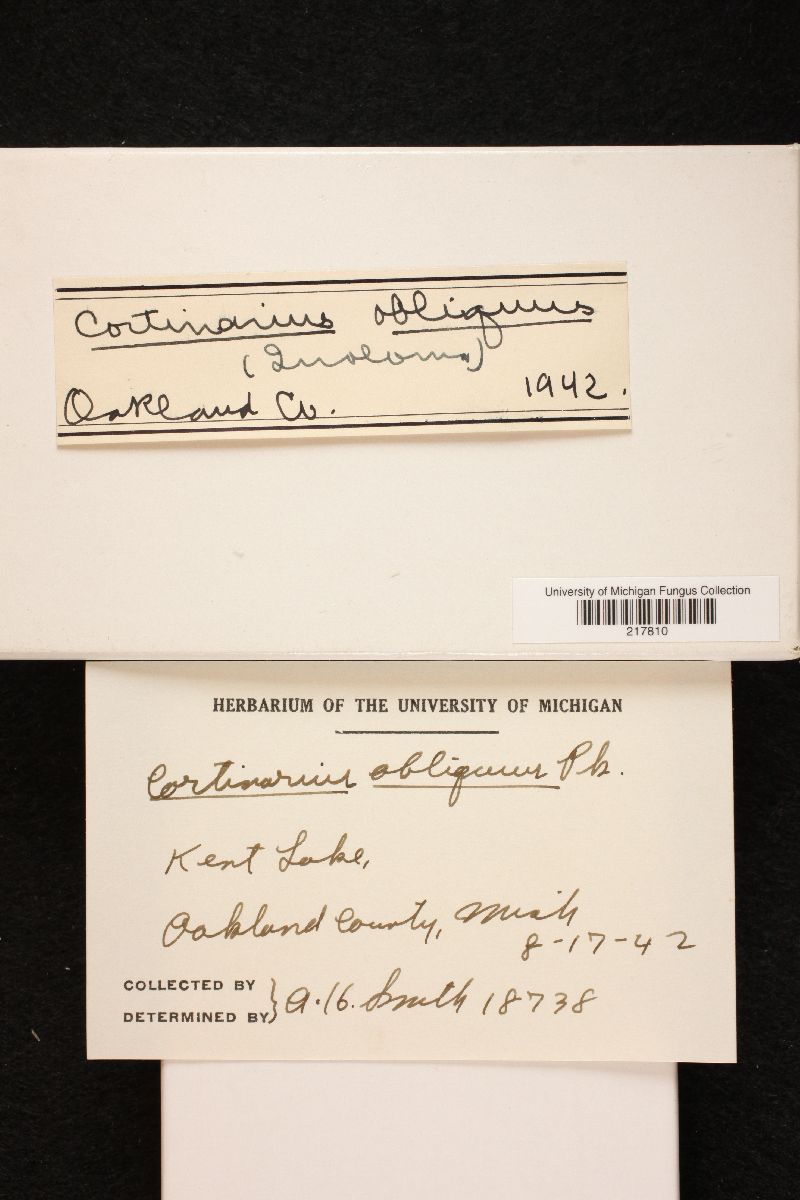 Cortinarius obliquus
(Inoloma)
Oakland Co. 1942.
University of Michigan Fungus Collection
217810
HERBARIUM OF THE UNIVERSITY OF MICHIGAN
Cortinarius obliquus Pk.
Kent Lake,
Oakland County, Mich
8-17-42
COLLECTED BY
DETERMINED BY } A. H. Smith 18738